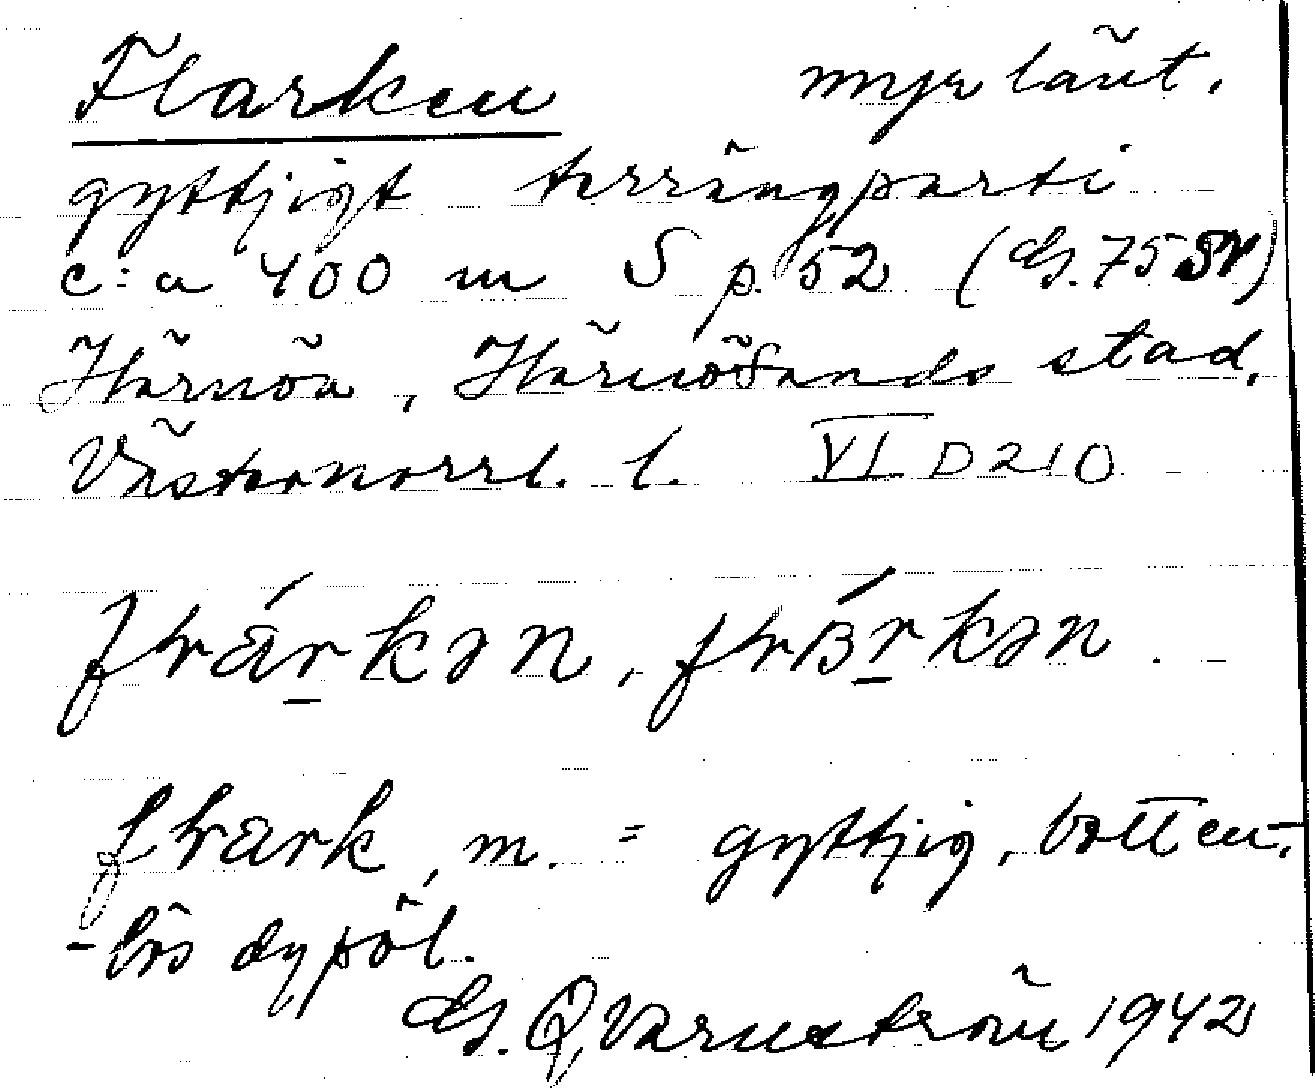 Flarken mycket länt.
gyttjigt terrängparti
c:a 400 m S p. 52 (G. 75 SV)
Härnön, Härnösands stad,
Västernorrl. l. VI D 210
frárkən, frʙ́rkən.
frark, m. = gyttjig, botten-
-lös dypöl.
G. Qvarnström 1942